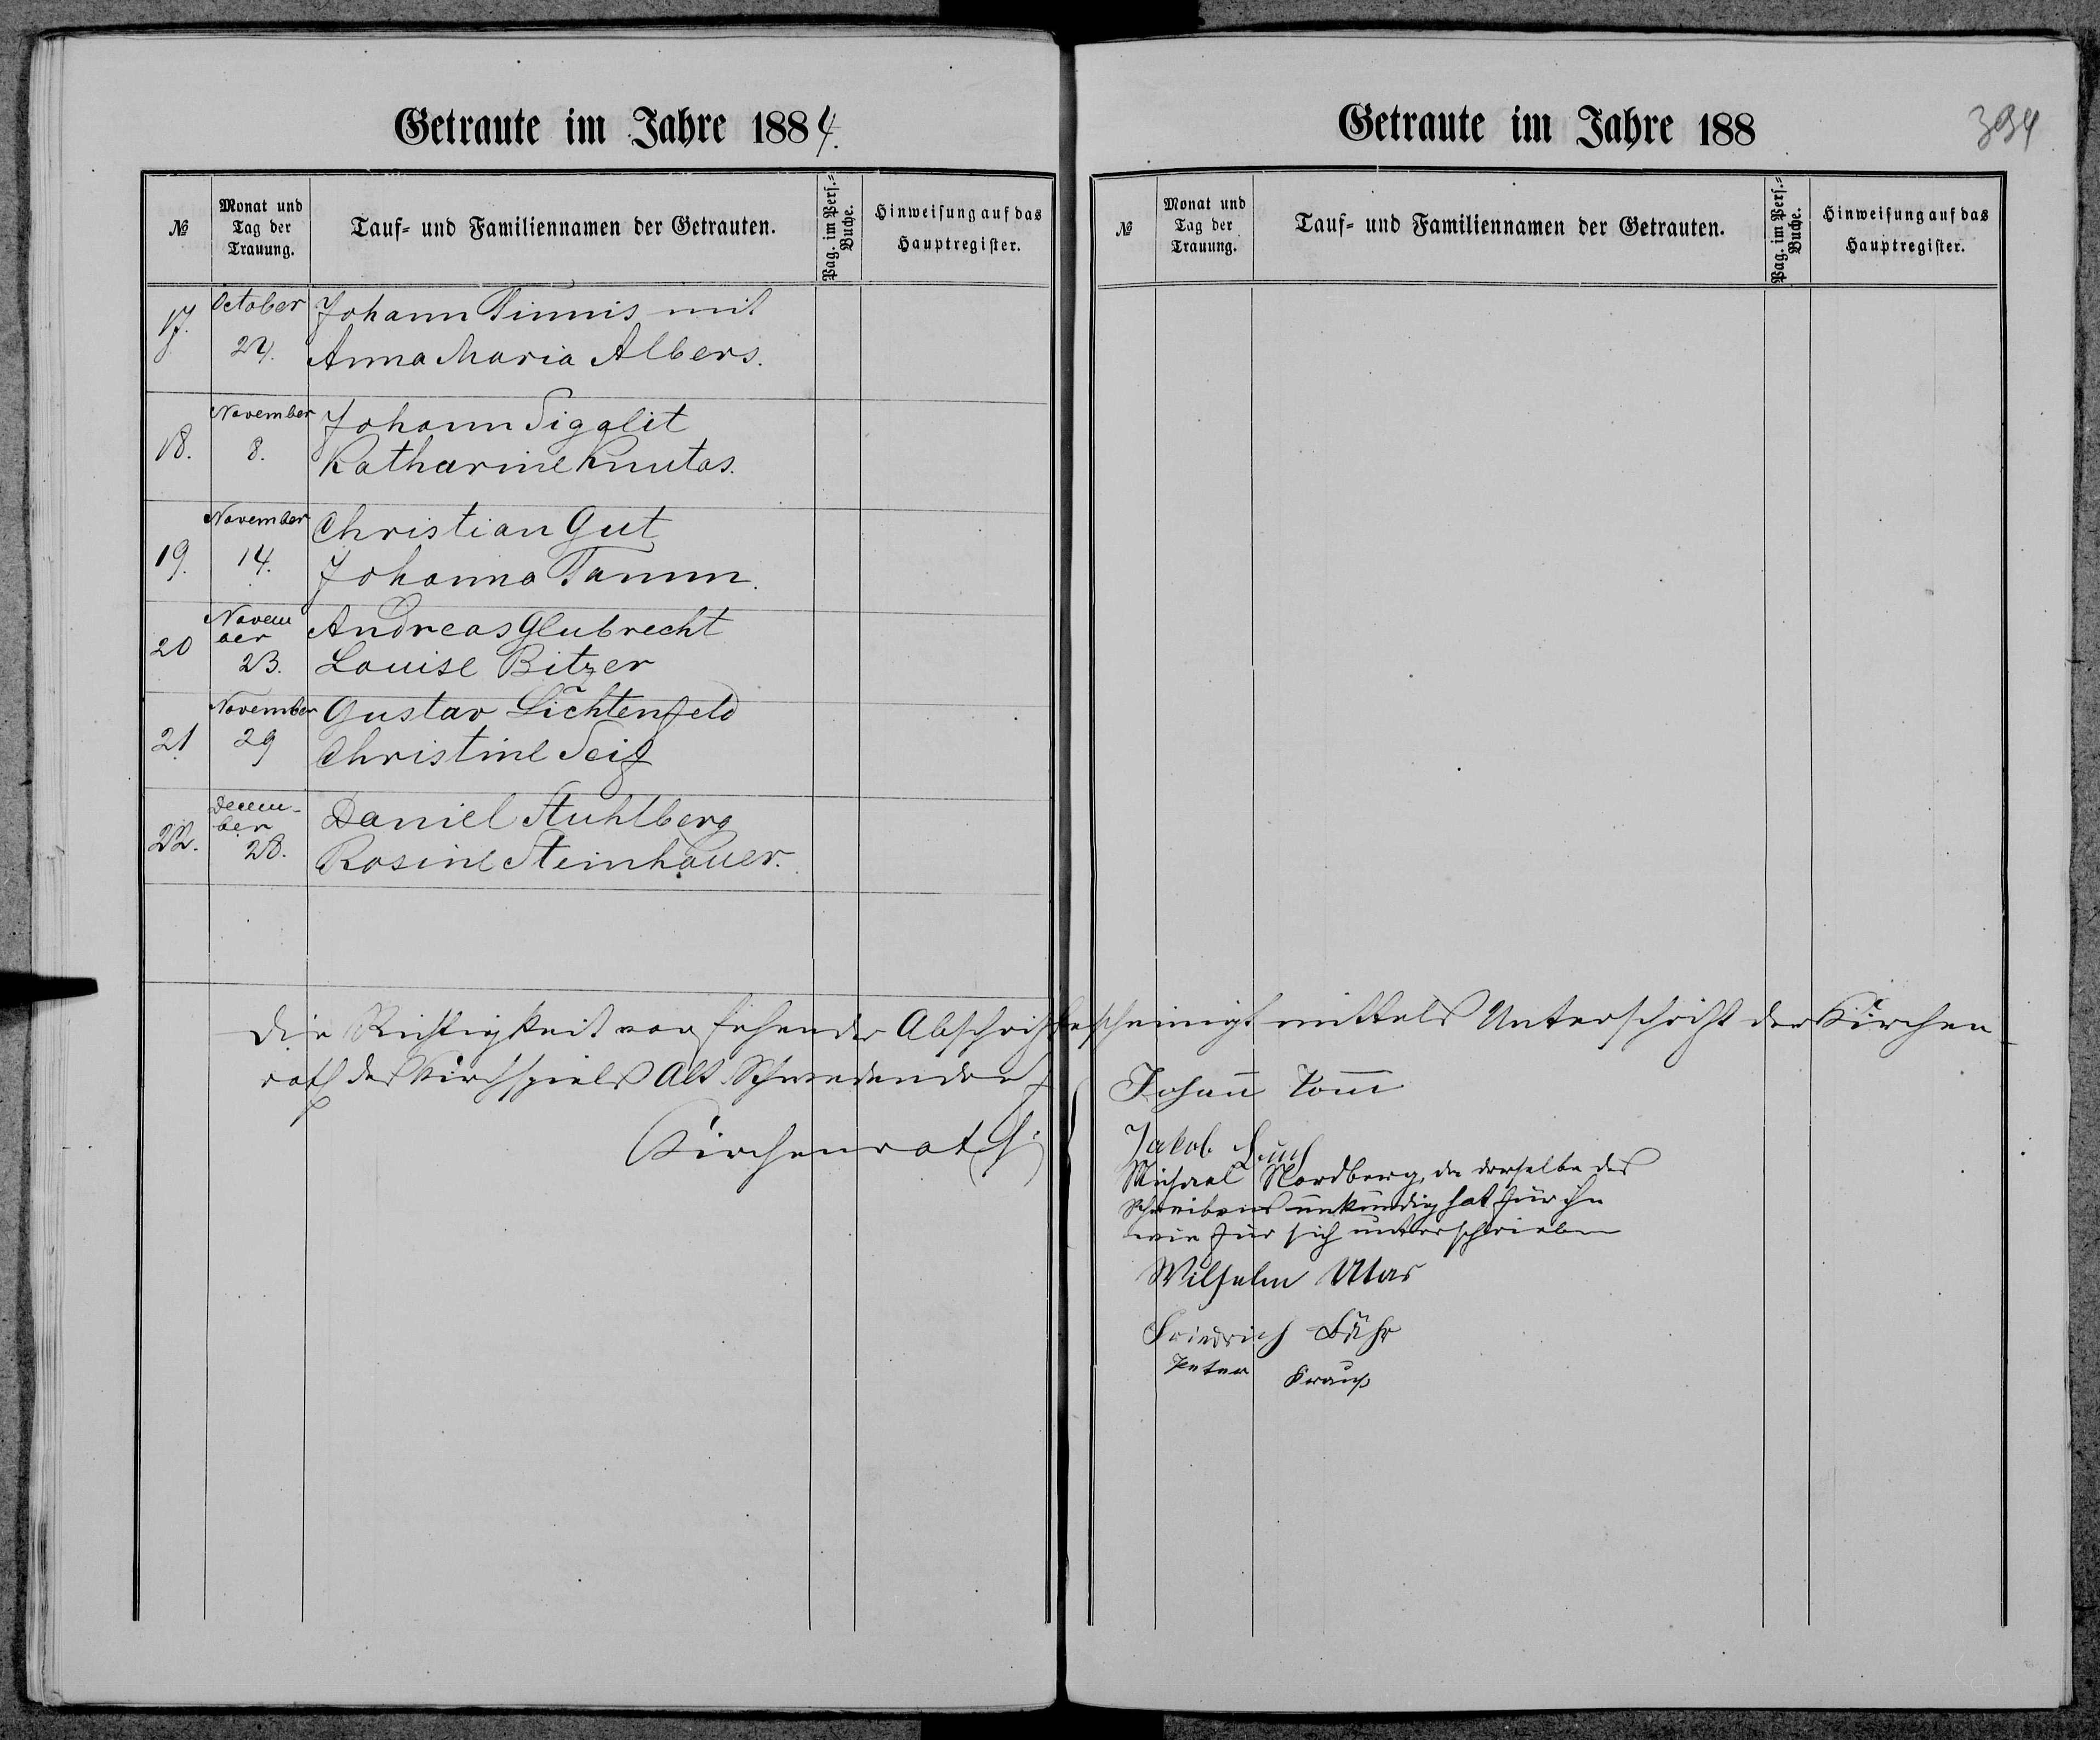 Getraute im Jahre 1884.
№
Monat und
Tag der
Trauung.
Tauf- und Familiennamen der Getrauten.
Pag. im Pers.-
Buche.
Hinweisung auf das
Hauptregister.
17.
October
24.
Johann Tinnis mit
Anna Maria Albers.
18.
November
8.
Johann Sigalit
Katharine Knutas.
19.
November
14.
Christian Gut
Johanna Tamm.
20
Novem
ber
23.
Andreas Glubrecht
Louise Bitzer
21.
November
29
Gustav Lichtenfeld
Christine Seig
22.
Decem-
ber
28.
Daniel Stuhlberg
Rosine Steinhauer.
Getraute im Jahre 188
394
№
Monat und
Tag der
Trauung.
Tauf- und Familiennamen der Getrauten.
Pag. im Pers.-
Buche.
Hinweisung auf das
Hauptregister.
Die Richtigkeit vorstehender Abschrift bescheinigt mittels Unterschrift der Kirchen
rath des Kirchspiels Alt Schwedendorf
Kirchenrath:
Johann Tomm
Jakob
Michael Nordberg, da derselbe des
Schreibens unkundig hat für ihn
wie für sich unterschrieben
Wilhelm Utas
Friedrich Fähr
Peter Krauß